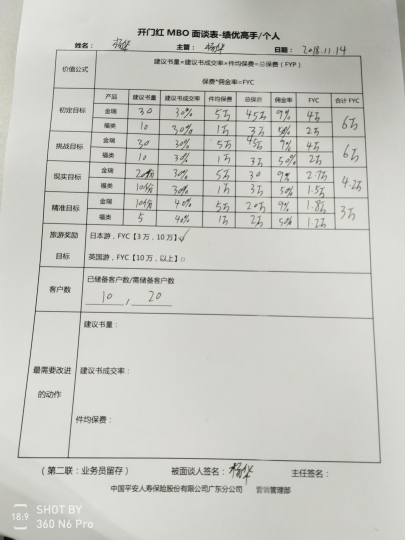 开门红 MBO 面谈表-绩优高手/个人
姓名： 主管： 日期：2018.11.14
价值公式
建议书量×建议书成交率×件均保费=总保费（FYP）
保费*佣金率=FYC
产品 建议书量 建议书成交率 件均保费 总保费 佣金率 FYC 合计 FYC
初定目标 金瑞 30 30% 5万 45万 9% 4万 6万
福类 10 30% 1万 3万 50% 2万
挑战目标 金瑞 30 30% 5万 45 9% 4万 6万
福类 10 30% 1万 3万 50% 2万
现实目标 金瑞 20份 30% 5万 30 9% 2.7万 4.2万
福类 10份 30% 1万 3万 50% 1.5万
精准目标 金瑞 10份 40% 5万 20万 9% 1.8万 3万
福类 5 40% 1万 2万 50% 1.2万
旅游奖励目标
日本游，FYC【3 万，10 万】√
英国游，FYC【10 万，以上】□
客户数
已储备客户数/需储备客户数
10 , 20
最需要改进的动作
建议书量：
建议书成交率：
件均保费：
（第二联：业务员留存） 被面谈人签名： 主任签名：
中国平安人寿保险股份有限公司广东分公司 营销管理部
18:9 SHOT BY
360 N6 Pro